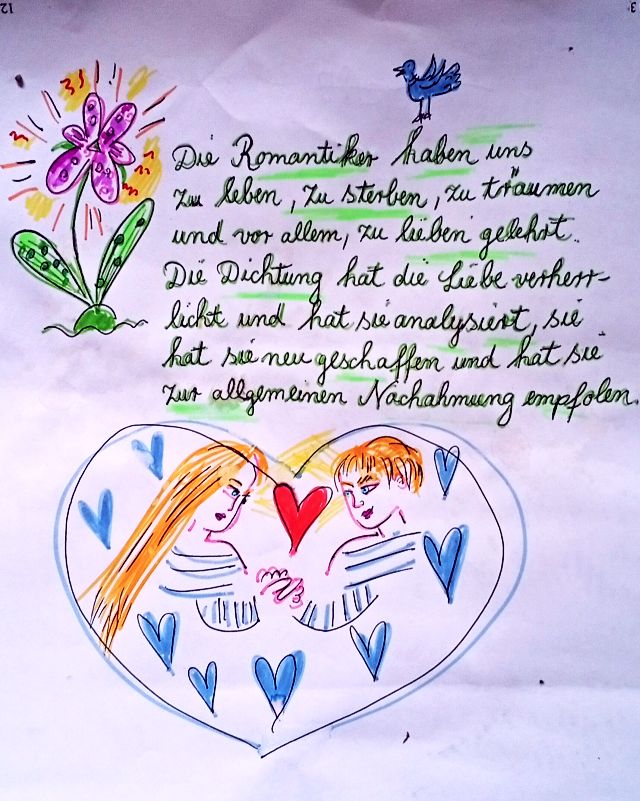 12
3
Die Romantiker haben uns
zu leben, zu sterben, zu träumen
und vor allem, zu lieben gelehrt.
Die Dichtung hat die Liebe verherr-
licht und hat sie analysiert, sie
hat sie neu geschaffen und hat sie
zur allgemeinen Nachahmung empfolen.